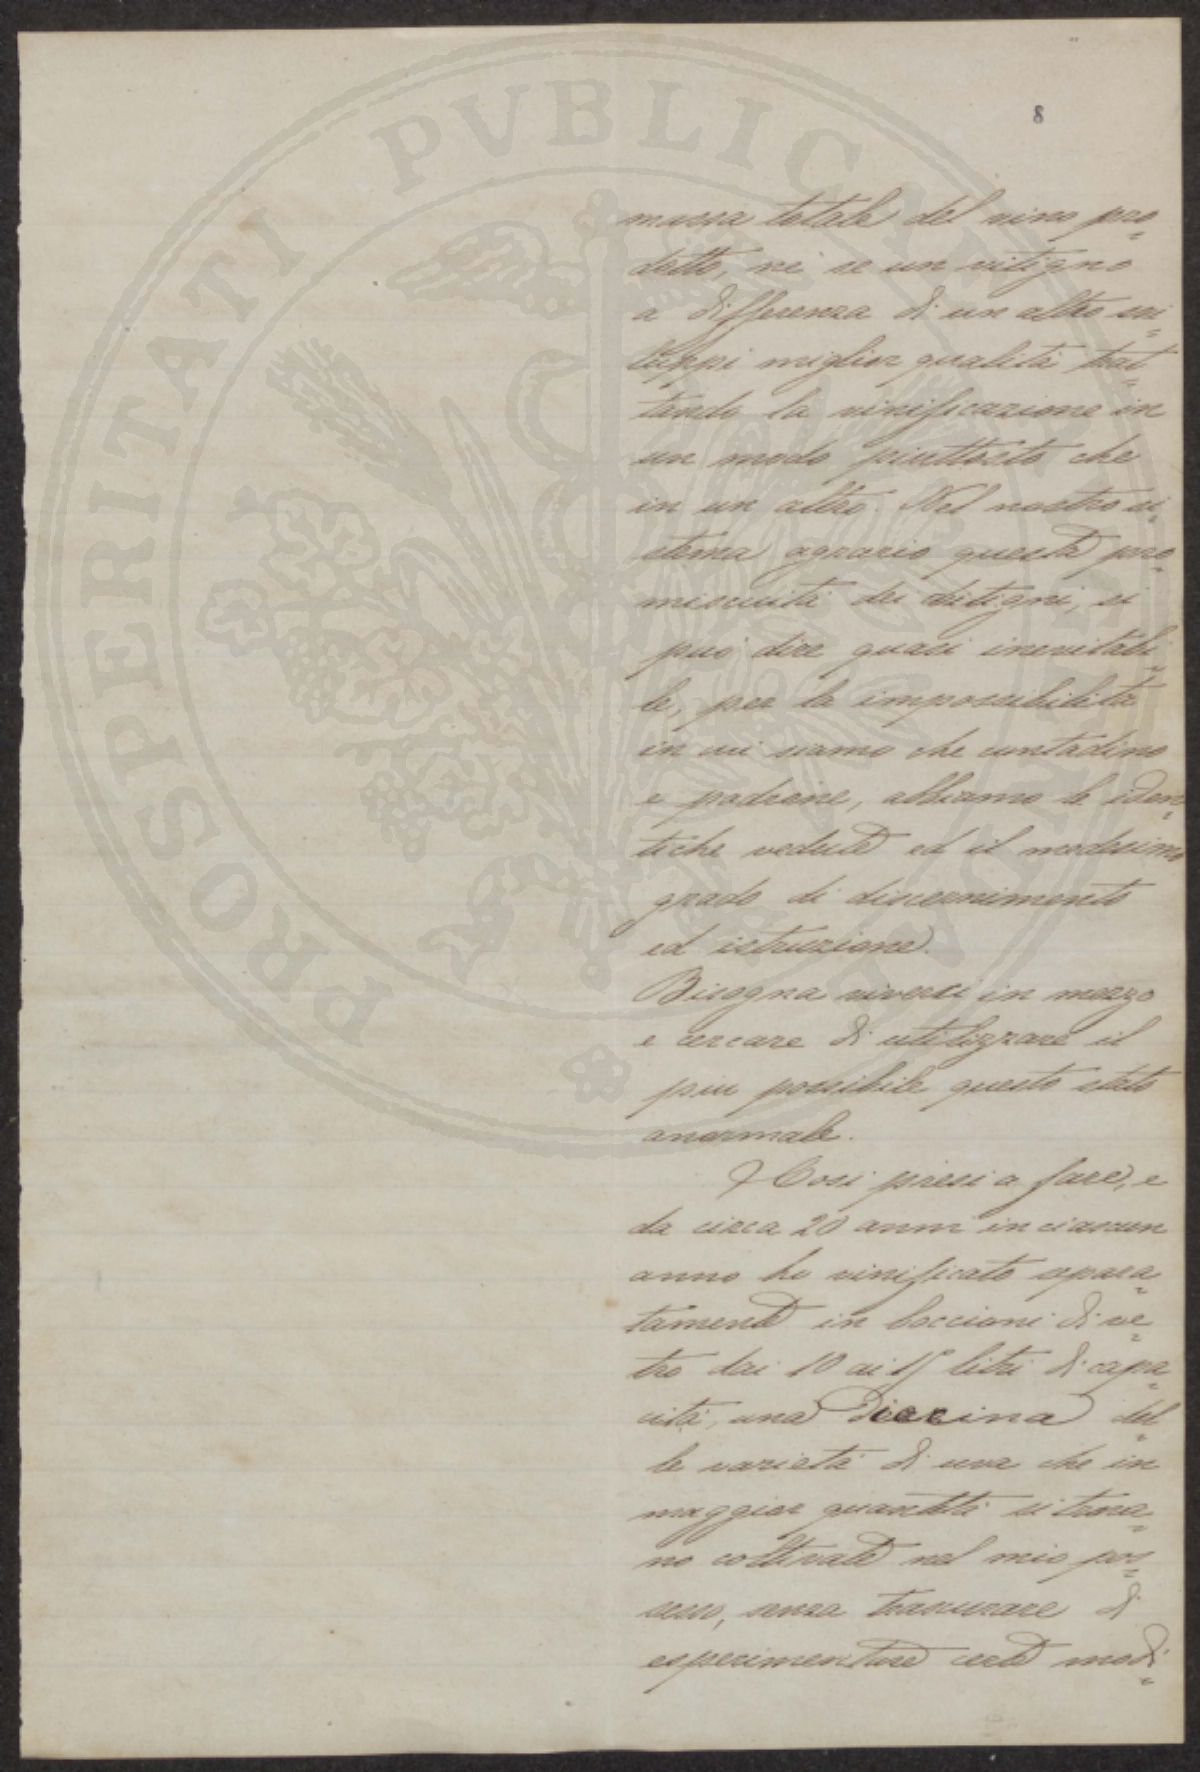 PROSPERITATI PVBLICAE AVGENDAE
8
massa totale del vino pro=
dotto, nè se un vitigno
a differenza di un altro svi=
luppi miglior qualità trat=
tando la vinificazione in
un modo piuttosto che
in un altro. Nel nostro si=
stema agrario questa pro=
miscuità dei vitigni, si
può dire quasi inevitabi=
le, per la impossibilità
in cui siamo che contadino
e padrone, abbiamo le iden=
tiche vedute ed il medesimo
grado di discernimento
ed istruzione.
Bisogna viverci in mezzo
e cercare di utilizzare il
più possibile questo stato
anormale.
Così presi a fare, e
da circa 20 anni in ciascun
anno ho vinificato separa=
tamente in boccioni di ve=
tro dai 10 ai 15 litri di capa=
cità, una diecina del=
le varietà di uva che in
maggior quantità si trova=
no coltivate nel mio pos=
sesso, senza trascurare di
esperimentare certe modi=